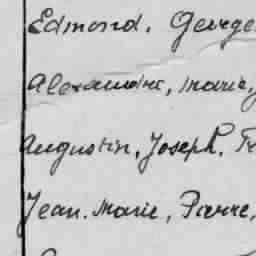 Edmond. George
Alexandre, Marie,
Augustin, Joseph.
Jean. Marie, Pierre,